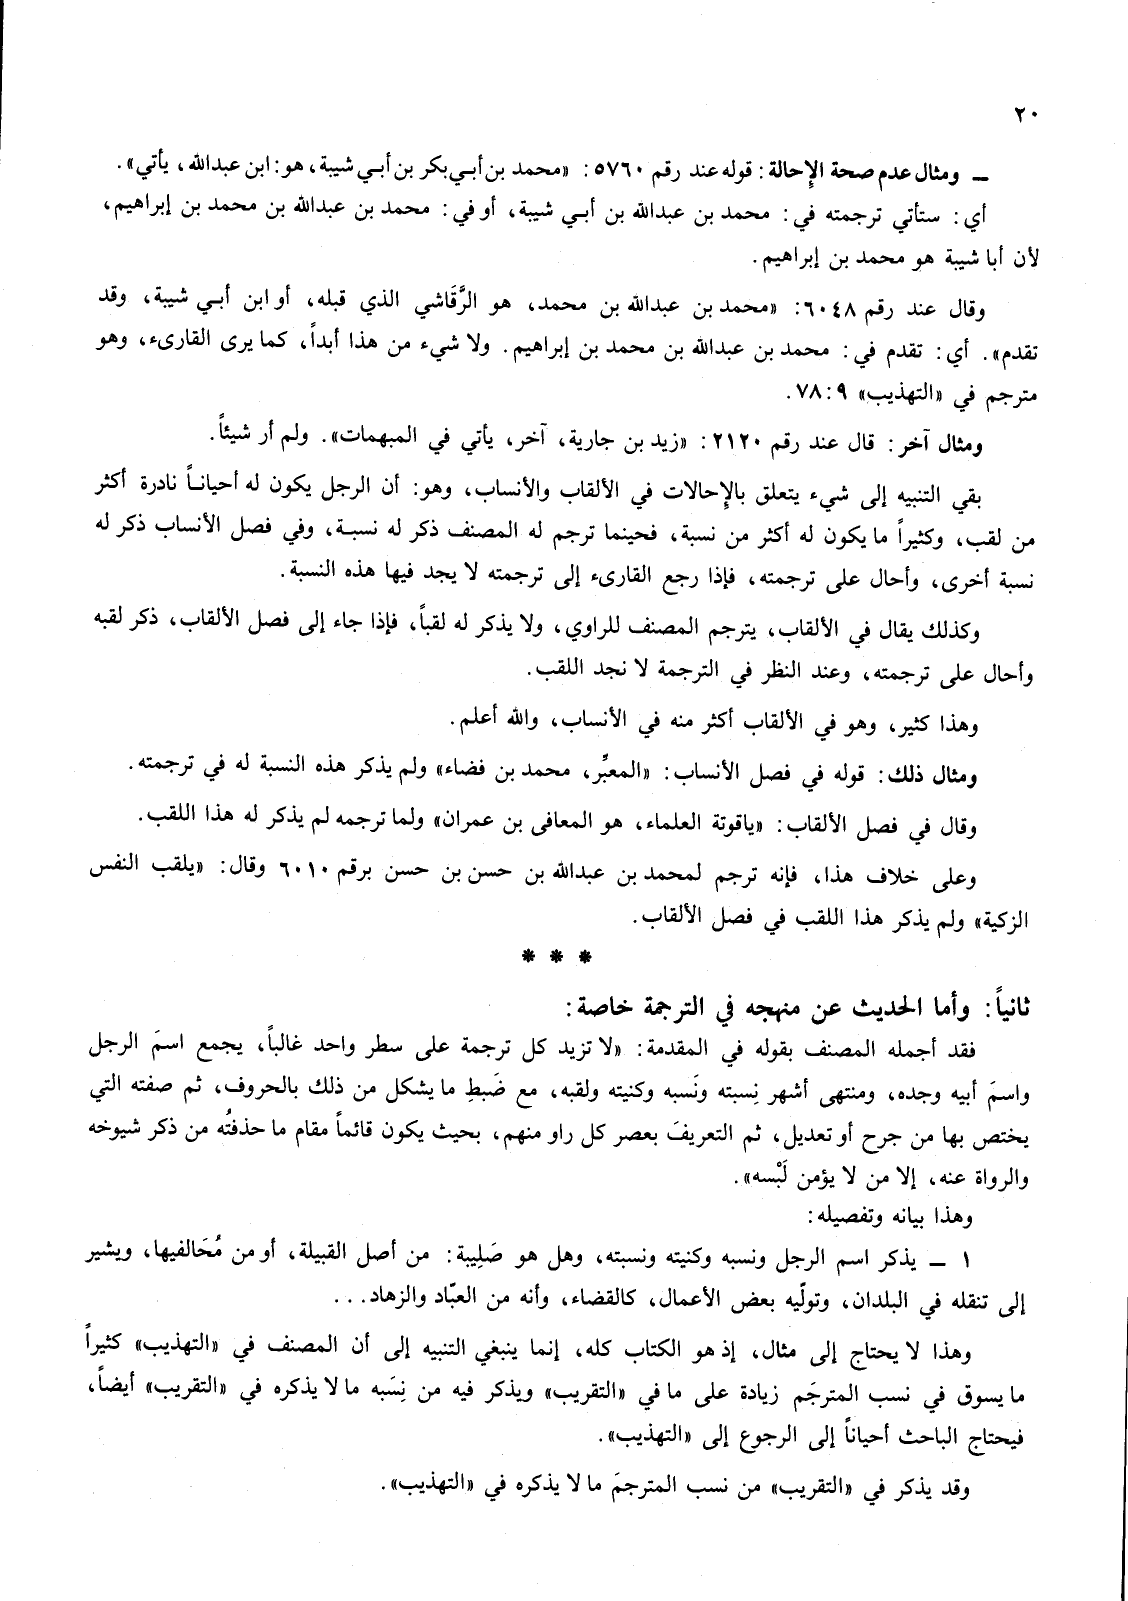 ٢٠
ــ ومثال عدم صحة الإحالة: قوله عند رقم ٥٧٦٠: «محمد بن أبي بكر بن أبي شيبة، هو: ابن عبدالله، يأتي».
أي: ستأتي ترجمته في: محمد بن عبدالله بن أبي شيبة، أو في: محمد بن عبدالله بن محمد بن إبراهيم،
لأن أبا شيبة هو محمد بن إبراهيم.
وقال عند رقم ٦٠٤٨: «محمد بن عبدالله بن محمد، هو الرَّقَاشي الذي قبله، أو ابن أبي شيبة، وقد
تقدم». أي: تقدم في: محمد بن عبدالله بن محمد بن إبراهيم. ولا شيء من هذا أبداً، كما يرى القارىء، وهو
مترجم في «التهذيب» ٩:٧٨.
ومثال آخر: قال عند رقم ٢١٢٠: «زيد بن جارية، آخر، يأتي في المبهمات». ولم أر شيئاً.
بقي التنبيه إلى شيء يتعلق بالإحالات في الألقاب والأنساب، وهو: أن الرجل يكون له أحياناً نادرة أكثر
من لقب، وكثيراً ما يكون له أكثر من نسبة، فحينما ترجم له المصنف ذكر له نسبة، وفي فصل الأنساب ذكر له
نسبة أخرى، وأحال على ترجمته، فإذا رجع القارىء إلى ترجمته لا يجد فيها هذه النسبة.
وكذلك يقال في الألقاب، يترجم المصنف للراوي، ولا يذكر له لقباً، فإذا جاء إلى فصل الألقاب، ذكر لقبه
وأحال على ترجمته، وعند النظر في الترجمة لا نجد اللقب.
وهذا كثير، وهو في الألقاب أكثر منه في الأنساب، والله أعلم.
ومثال ذلك: قوله في فصل الأنساب: «المعبِّر، محمد بن فضاء» ولم يذكر هذه النسبة له في ترجمته.
وقال في فصل الألقاب: «ياقوتة العلماء، هو المعافى بن عمران» ولما ترجمه لم يذكر له هذا اللقب.
وعلى خلاف هذا، فإنه ترجم لمحمد بن عبدالله بن حسن بن حسن برقم ٦٠١٠ وقال: «يلقب النفس
الزكية» ولم يذكر هذا اللقب في فصل الألقاب.
* * *
ثانياً: وأما الحديث عن منهجه في الترجمة خاصة:
فقد أجمله المصنف بقوله في المقدمة: «لا تزيد كل ترجمة على سطر واحد غالباً، يجمع اسمَ الرجل
واسمَ أبيه وجده، ومنتهى أشهر نِسبته ونَسبه وكنيته ولقبه، مع ضَبطِ ما يشكل من ذلك بالحروف، ثم صفته التي
يختص بها من جرح أو تعديل، ثم التعريفَ بعصر كل راو منهم، بحيث يكون قائماً مقام ما حذفتُه من ذكر شيوخه
والرواة عنه، إلا من لا يؤمن لَبْسه».
وهذا بيانه وتفصيله:
١ ــ يذكر اسم الرجل ونسبه وكنيته ونسبته، وهل هو صَلِيبة: من أصل القبيلة، أو من مُحَالفيها، ويشير
إلى تنقله في البلدان، وتولّيه بعض الأعمال، كالقضاء، وأنه من العبّاد والزهاد...
وهذا لا يحتاج إلى مثال، إذ هو الكتاب كله، إنما ينبغي التنبيه إلى أن المصنف في «التهذيب» كثيراً
ما يسوق في نسب المترجَم زيادة على ما في «التقريب» ويذكر فيه من نِسَبه ما لا يذكره في «التقريب» أيضاً،
فيحتاج الباحث أحياناً إلى الرجوع إلى «التهذيب».
وقد يذكر في «التقريب» من نسب المترجمَ ما لا يذكره في «التهذيب».